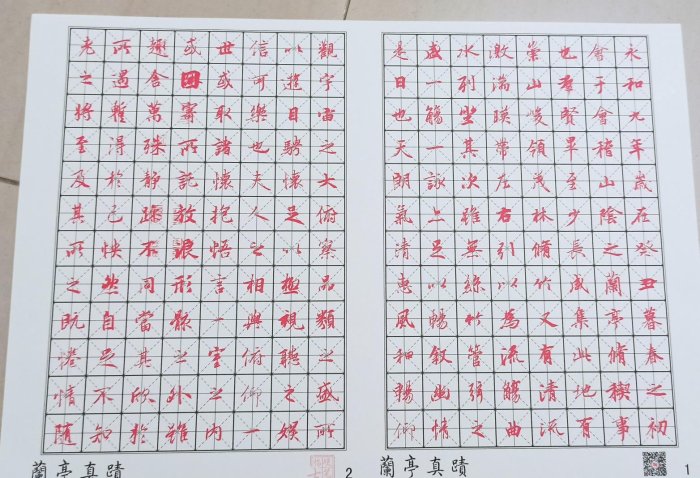 永和九年歲在癸丑暮春之初
會于會稽山陰之蘭亭脩稧事
也羣賢畢至少長咸集此地有
崇山峻領茂林脩竹又有清流
激湍暎帶左右引以為流觴曲
水列坐其次雖無絲竹管弦之
盛一觴一詠亦足以暢叙幽情
是日也天朗氣清惠風和暢仰
蘭亭真蹟
1
觀宇宙之大俯察品類之盛所
以遊目騁懷足以極視聽之娛
信可樂也夫人之相與俯仰一
世或取諸懷抱悟言一室之內
或因寄所託放浪形骸之外雖
趣舍萬殊靜躁不同當其欣於
所遇暫得於己怏然自足不知
老之將至及其所之既惓情隨
蘭亭真蹟
2